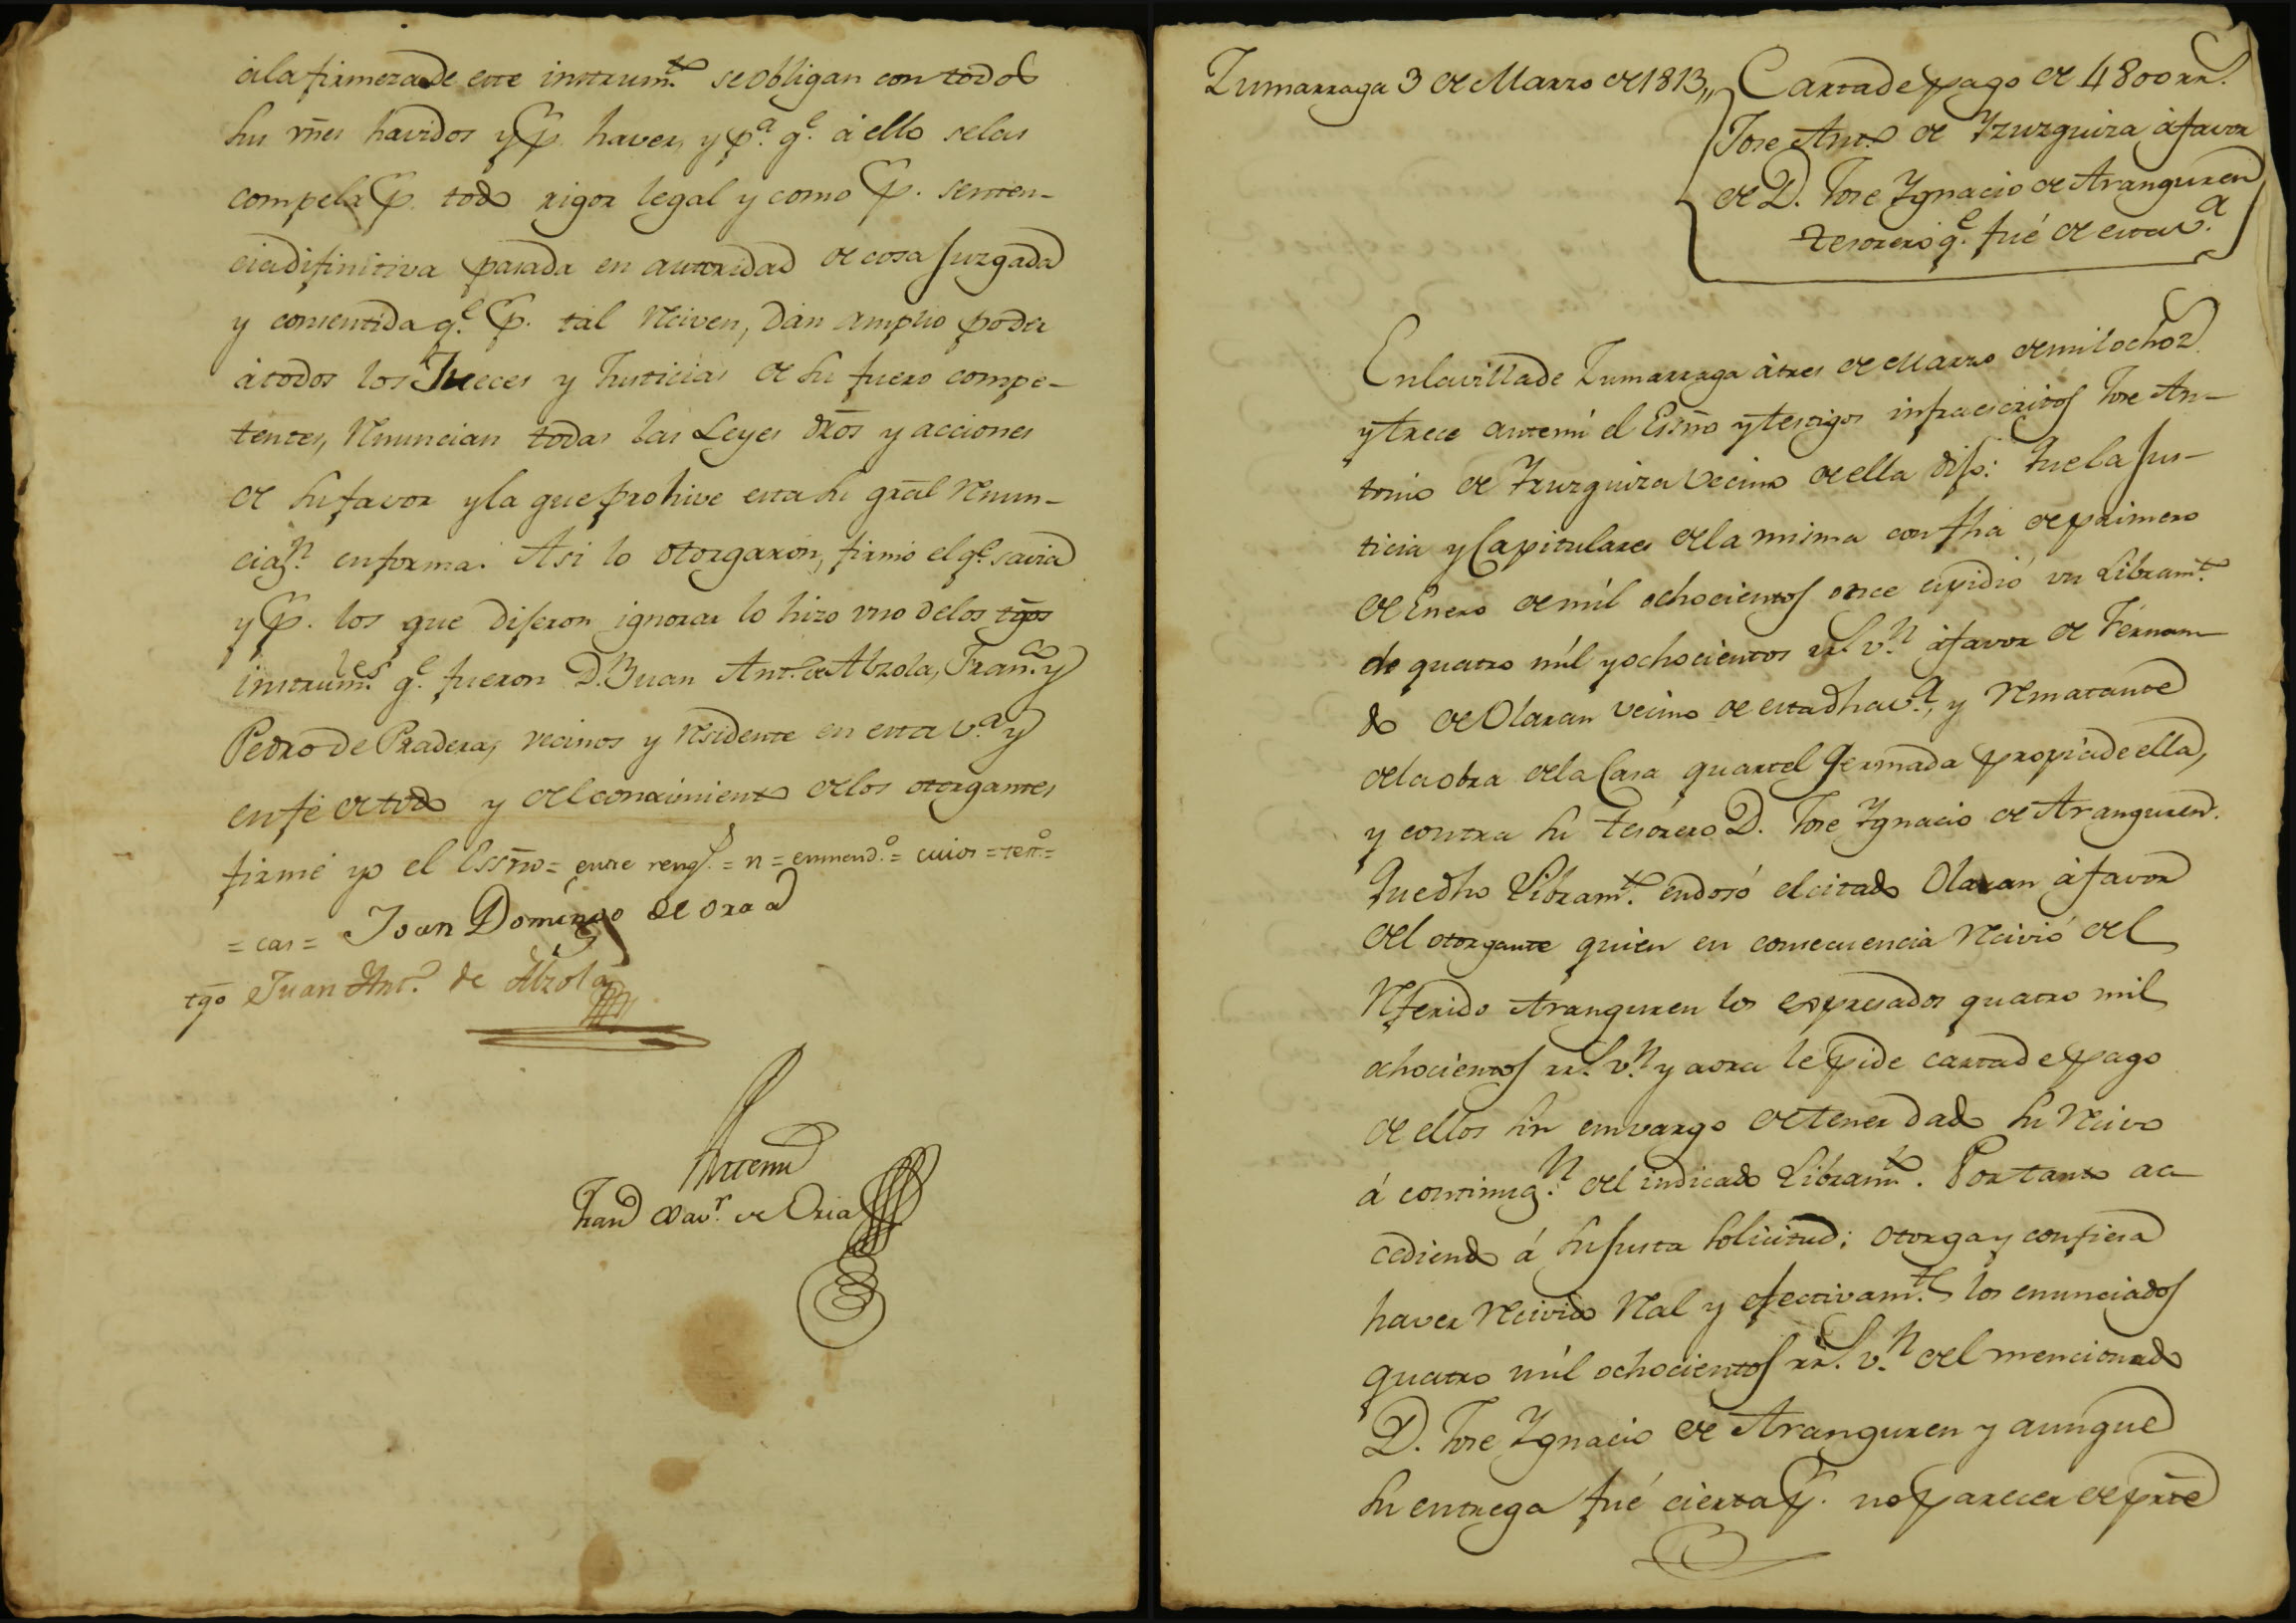 a la firmeza de este instrum.to se obligan con todos
su vńes havidos y p. haver, y p.a q.e á ello se las
compela p. todo rigor legal y como p. senten-
cia difinitiva pasada en autoridad de cosa Juzgada
y consentida q.e p. tal Reciven, dàn amplio poder
à todos los Jueces y Justicias de su fuero compe-
tentes, Renuncian todas las Leyes dr̃os y acciones
de su favor y la que prohive esta su gr̃al Renun-
ciaz.n en forma. Asi lo otorgaron, firmó el q.e savia
y p. los que dijeron ignorar lo hizo uno de los tg̃os
instrum.les q.e fueron D.n Juan Ant.o de Alzola, Fran.co y
Pedro de Pradera, vecinos y Residente en esta v.a y
en fé de todo y del conocimiento de los otorgantes
firmé yo el Ess̃no = entre rengl.s = n = enmend.o = cuios = test.o =
= cas = Joan Domingo de Oraa
tg̃o Juan Ant.o de Alzola
Antemi
Fran.co Xav.r de Oria
Zumarraga 3 de Marzo de 1813,, Carta de pago de 4800 rr.s
Jose Ant.o de Yzuzquiza à favor
de D. Jose Ygnacio de Aranguren
tesorero q.e fué de esta v.a
En la villa de Zumarraga à tres de Marzo de mil ochoz.s
y trece antemi el Esr̃no y testigos infraescritos Jose An-
tonio de Yzuzquiza vecino de ella dijo: Que la Jus-
ticia y Capitulares de la misma con fh̃a de primero
de Enero de mil ochocientos once expidió un Libram.to
de quatro mil y ochocientos rr.s v.n à favor de Fernan-
do de Olaran vecino de esta dha v.a, y Rematante
de la obra de la Casa quartel Germada propia de ella,
y contra su tesorero D. Jose Ygnacio de Aranguren.
Que dho Libram.to endosó el citado Olaran à favor
del otorgante quien en consecuencia Recivió del
Referido Aranguren los expresados quatro mil
ochocientos rr.s v.n y aora le pide carta de pago
de ellos sin embargo de tener dado su Recivo
á continuaz.n del indicado Libram.to. Por tanto ac-
cediendo á su justa solicitud: otorga y confiesa
haver Recivido Real y efectivam.te los enunciados
quatro mil ochocientos rr.s v.n del mencionado
D. Jose Ygnacio de Aranguren y aunque
su entrega fué cierta p. no parecer de prẽte